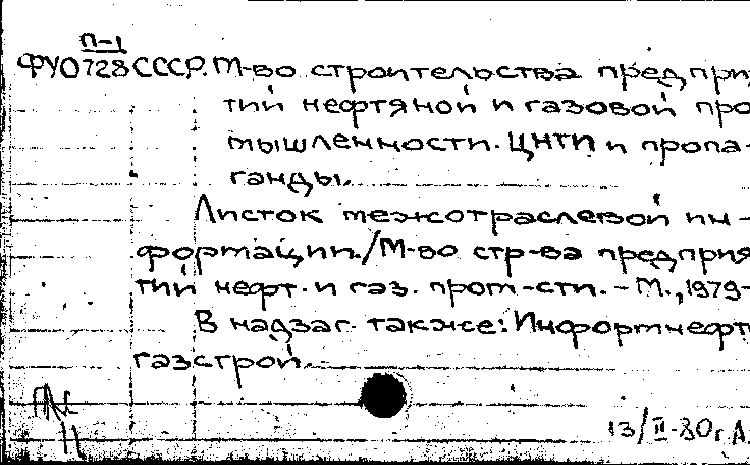 П-1
ФУО728 СССР. М-во строительства предприя
тий нефтяной и газовой про
мышленности. ЦНТИ и пропа-
ганды.
Листок межотраслевой ин-
формации./М-во стр-ва предприя
тий нефт. и газ. пром-сти. – М., 1979-
В надзаг. также: Информнефте
газстрой.
13/II-80г. А.